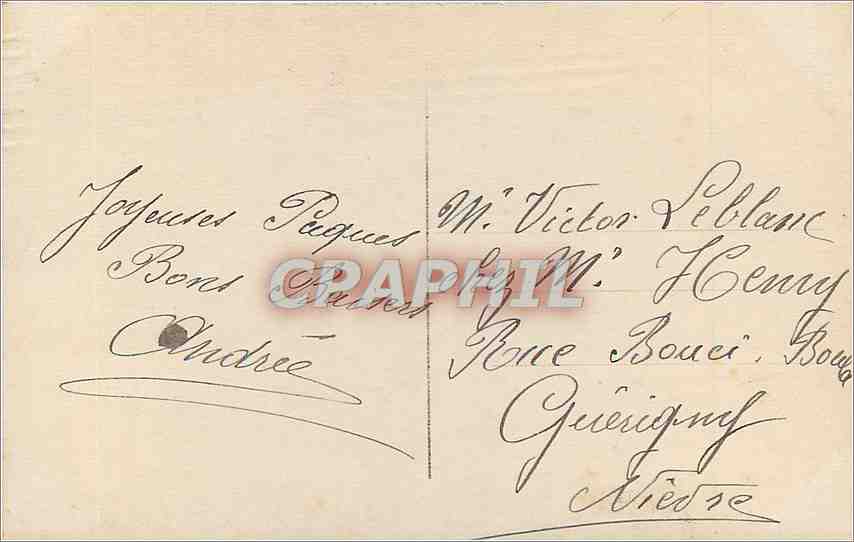 Joyeuses Pâques
Bons Baisers
Andrée
Mr Victor Leblanc
chez Mr Henry
Rue Bouci.
Guérigny
Nièvre
CPAPHIL